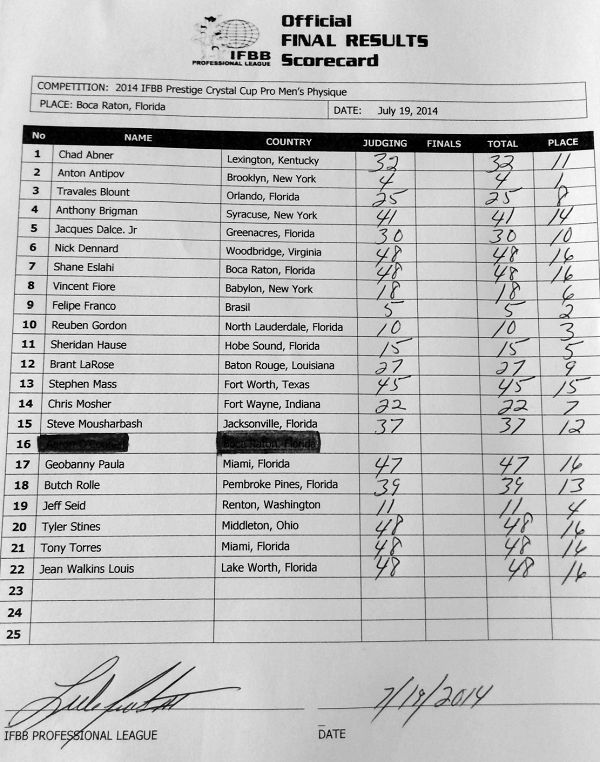 Official
FINAL RESULTS
Scorecard
IFBB
PROFESSIONAL LEAGUE
COMPETITION: 2014 IFBB Prestige Crystal Cup Pro Men's Physique
PLACE: Boca Raton, Florida DATE: July 19, 2014
No NAME COUNTRY JUDGING FINALS TOTAL PLACE
1 Chad Abner Lexington, Kentucky 32 32 11
2 Anton Antipov Brooklyn, New York 4 4 1
3 Travales Blount Orlando, Florida 25 25 8
4 Anthony Brigman Syracuse, New York 41 41 14
5 Jacques Dalce. Jr Greenacres, Florida 30 30 10
6 Nick Dennard Woodbridge, Virginia 48 48 16
7 Shane Eslahi Boca Raton, Florida 48 48 16
8 Vincent Fiore Babylon, New York 18 18 6
9 Felipe Franco Brasil 5 5 2
10 Reuben Gordon North Lauderdale, Florida 10 10 3
11 Sheridan Hause Hobe Sound, Florida 15 15 5
12 Brant LaRose Baton Rouge, Louisiana 27 27 9
13 Stephen Mass Fort Worth, Texas 45 45 15
14 Chris Mosher Fort Wayne, Indiana 22 22 7
15 Steve Mousharbash Jacksonville, Florida 37 37 12
16
17 Geobanny Paula Miami, Florida 47 47 16
18 Butch Rolle Pembroke Pines, Florida 39 39 13
19 Jeff Seid Renton, Washington 11 11 4
20 Tyler Stines Middleton, Ohio 48 48 16
21 Tony Torres Miami, Florida 48 48 16
22 Jean Walkins Louis Lake Worth, Florida 48 48 16
23
24
25
7/19/2014
IFBB PROFESSIONAL LEAGUE DATE